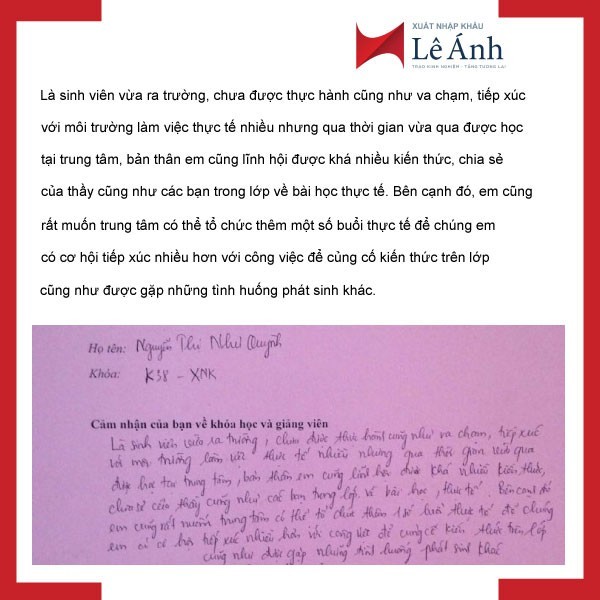 XUẤT NHẬP KHẨU
Lê Ánh
TRAO KINH NGHIỆM - TẶNG TƯƠNG LAI
Là sinh viên vừa ra trường, chưa được thực hành cũng như va chạm, tiếp xúc
với môi trường làm việc thực tế nhiều nhưng qua thời gian vừa qua được học
tại trung tâm, bản thân em cũng lĩnh hội được khá nhiều kiến thức, chia sẻ
của thầy cũng như các bạn trong lớp về bài học thực tế. Bên cạnh đó, em cũng
rất muốn trung tâm có thể tổ chức thêm một số buổi thực tế để chúng em
có cơ hội tiếp xúc nhiều hơn với công việc để củng cố kiến thức trên lớp
cũng như được gặp những tình huống phát sinh khác.
Họ tên: Nguyễn Thị Như Quỳnh
Khóa: K38 - XNK
Cảm nhận của bạn về khóa học và giảng viên
Là sinh viên vừa ra trường, chưa được thực hành cũng như va chạm, tiếp xúc
với môi trường làm việc thực tế nhiều nhưng qua thời gian vừa qua
được học tại trung tâm, bản thân em cũng lĩnh hội được khá nhiều kiến thức,
chia sẻ của thầy cũng như các bạn trong lớp về bài học thực tế. Bên cạnh đó
em cũng rất muốn trung tâm có thể tổ chức thêm 1 số buổi thực tế để chúng
em có cơ hội tiếp xúc nhiều hơn với công việc để củng cố kiến thức trên lớp
cũng như được gặp những tình huống phát sinh khác